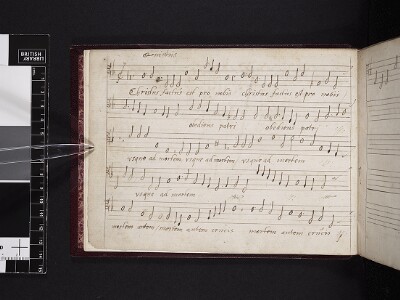 BRITISH
LIBRARY
Christus factus est pro nobis christus factus est pro nobis
obediens patri obediens patri
usque ad mortem usque ad mortem usque ad mortem
usque ad mortem
mortem autem mortem autem crucis mortem autem crucis